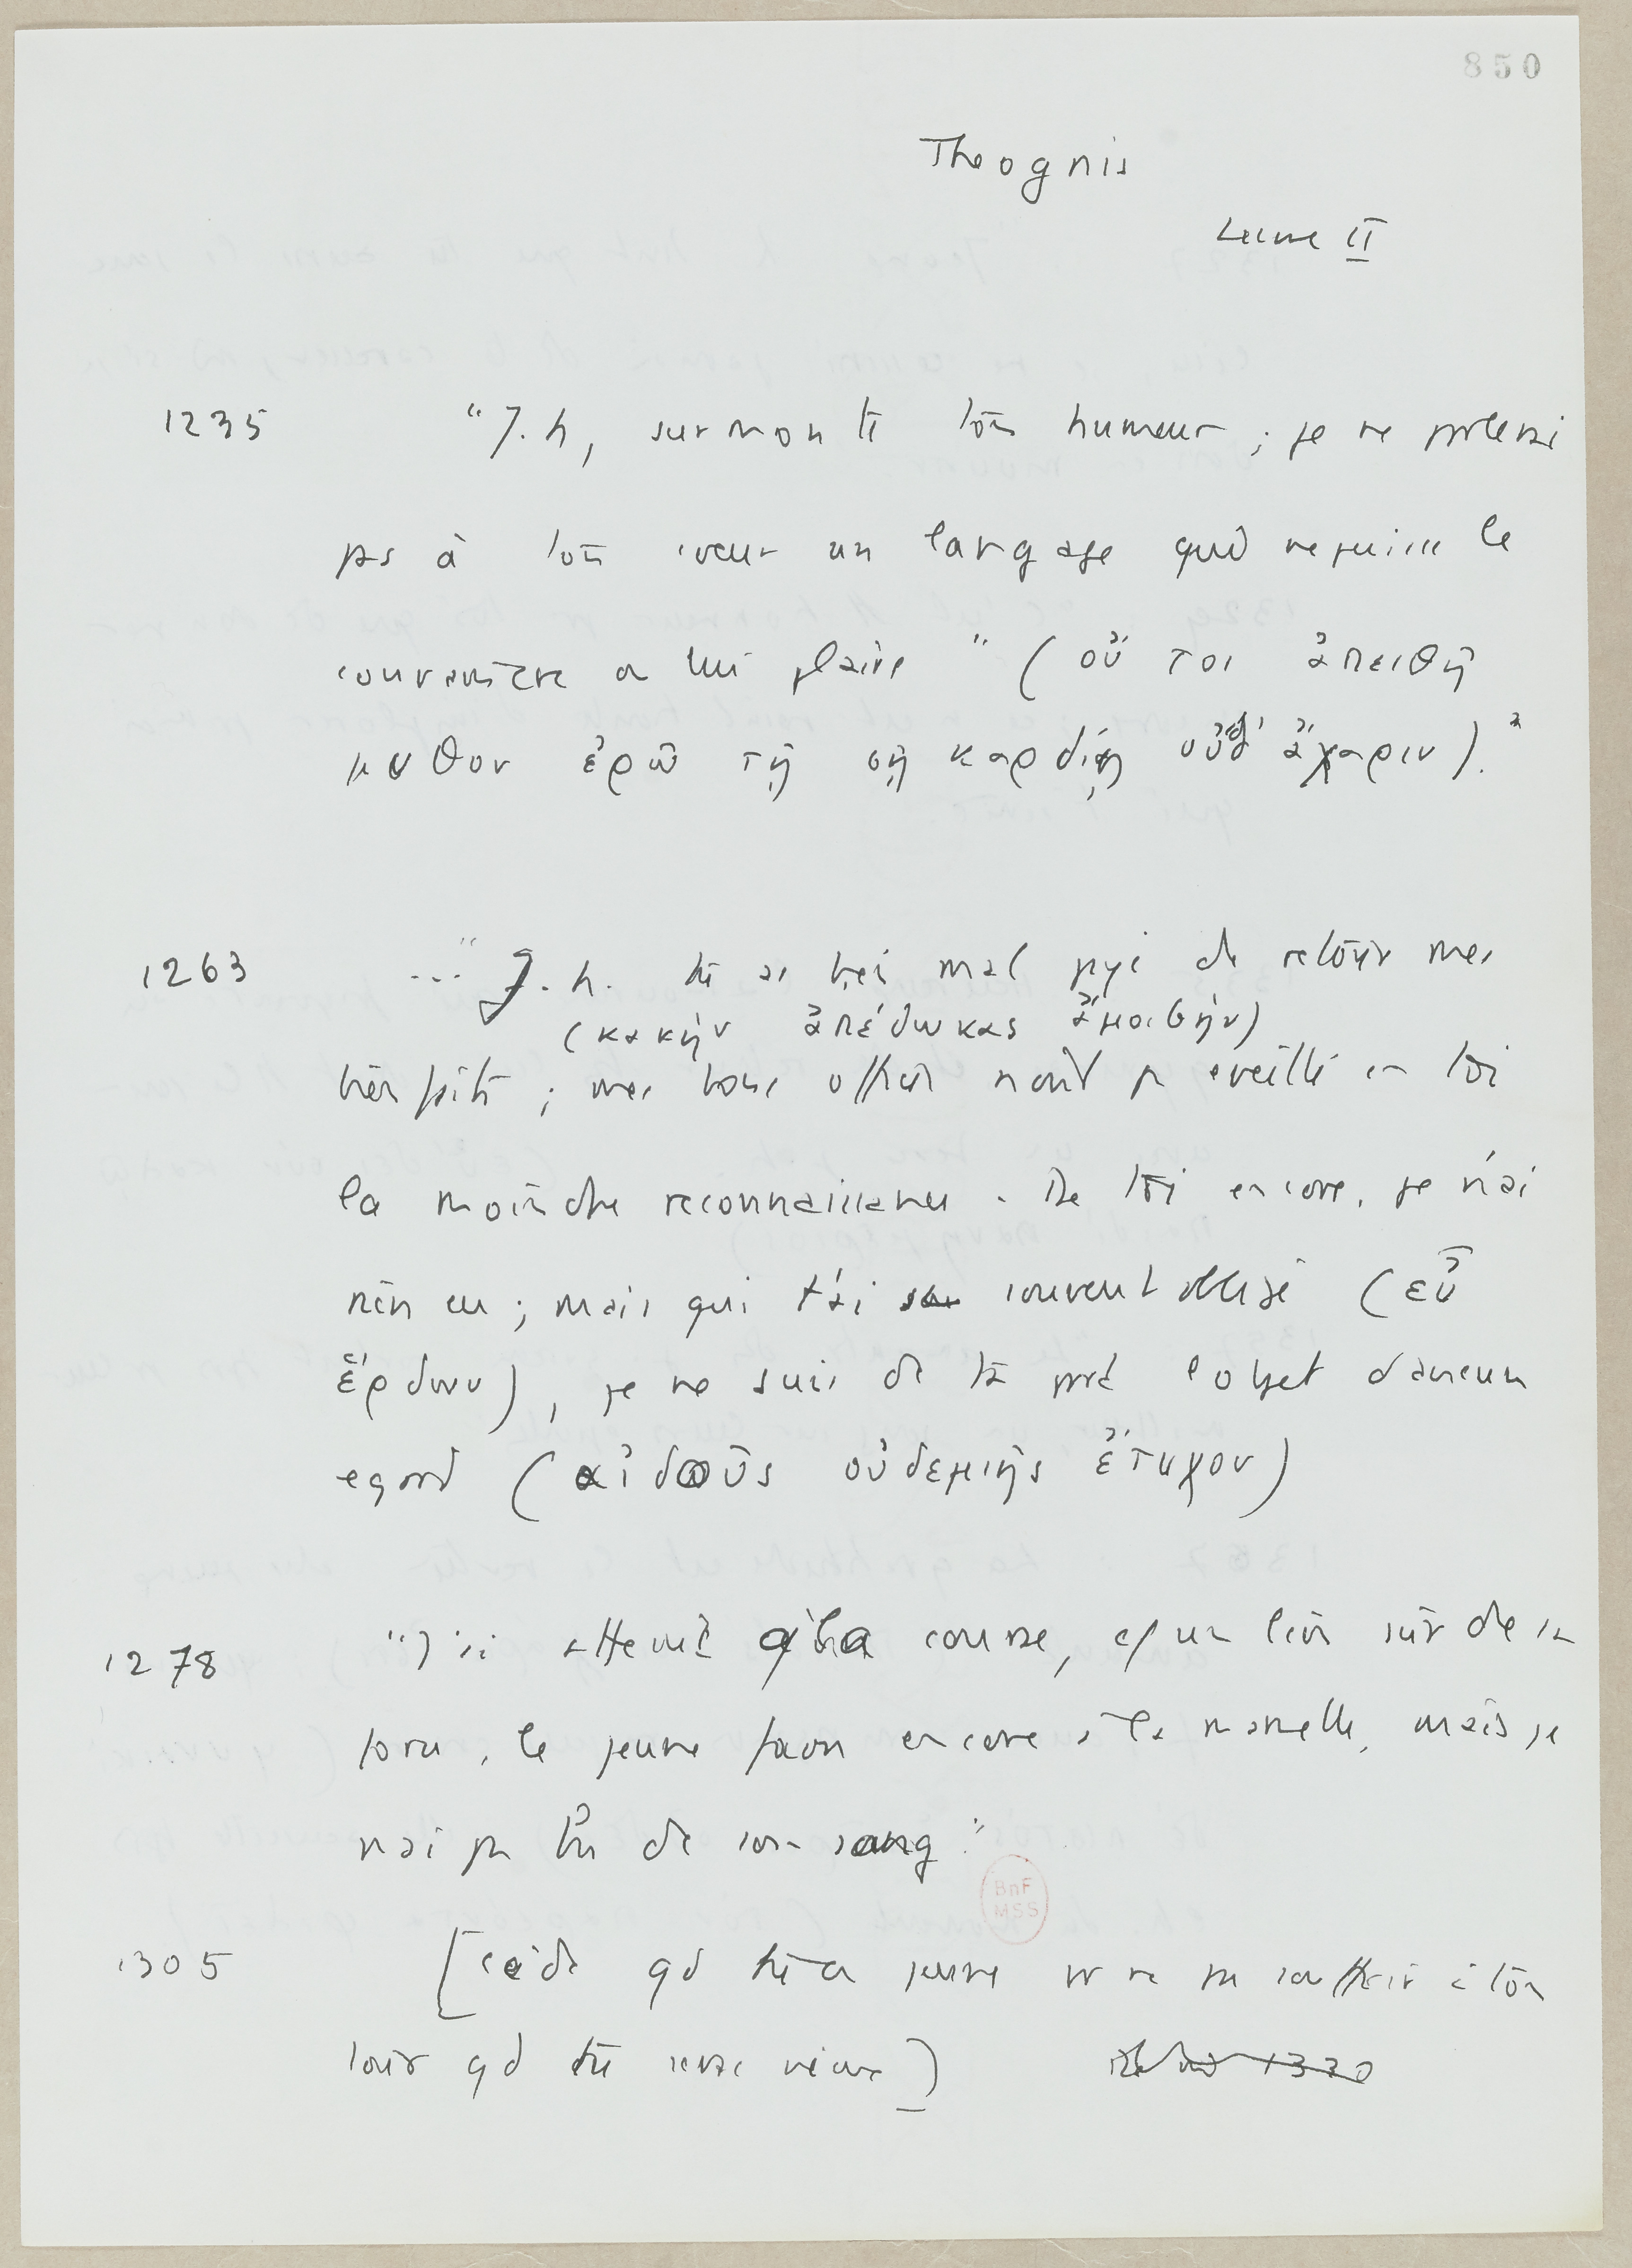 850
Theognis
Livre II
1235 "J. h, surmonte ton humeur ; je ne pretends
pas à ton cœur un langage qu'il ne puisse le
convaincre ou lui plaire" (οὔ τοι ἀπειθῆ
μυθον ἐρῶ τῇ σῇ καρδίῃ οὐδ' ἄχαριν).
1263 ... "J. h. tu as bien mal payé de retour mes
(κακὴν ἀπέδωκας ἀμοιβήν)
bienfaits ; mes bons offices n'ont pas eveillé en toi
la moindre reconnaissance. De toi encore, je n'ai
rien eu ; mais qui t'ai souvent obligé (εὖ
ἔρδων), je ne suis de ta part l'objet d'aucun
egard (αἰδοῦς οὐδεμιῆς ἔτυχον)
1278 "J'ai atteint à la course, c/ un lion sûr de sa
force, le jeune faon encore à la mamelle, mais je
n'ai pas bu de son sang"
1305 [cède qd tu es jeune pr ne pas souffrir à ton
tour qd tu seras vieux]